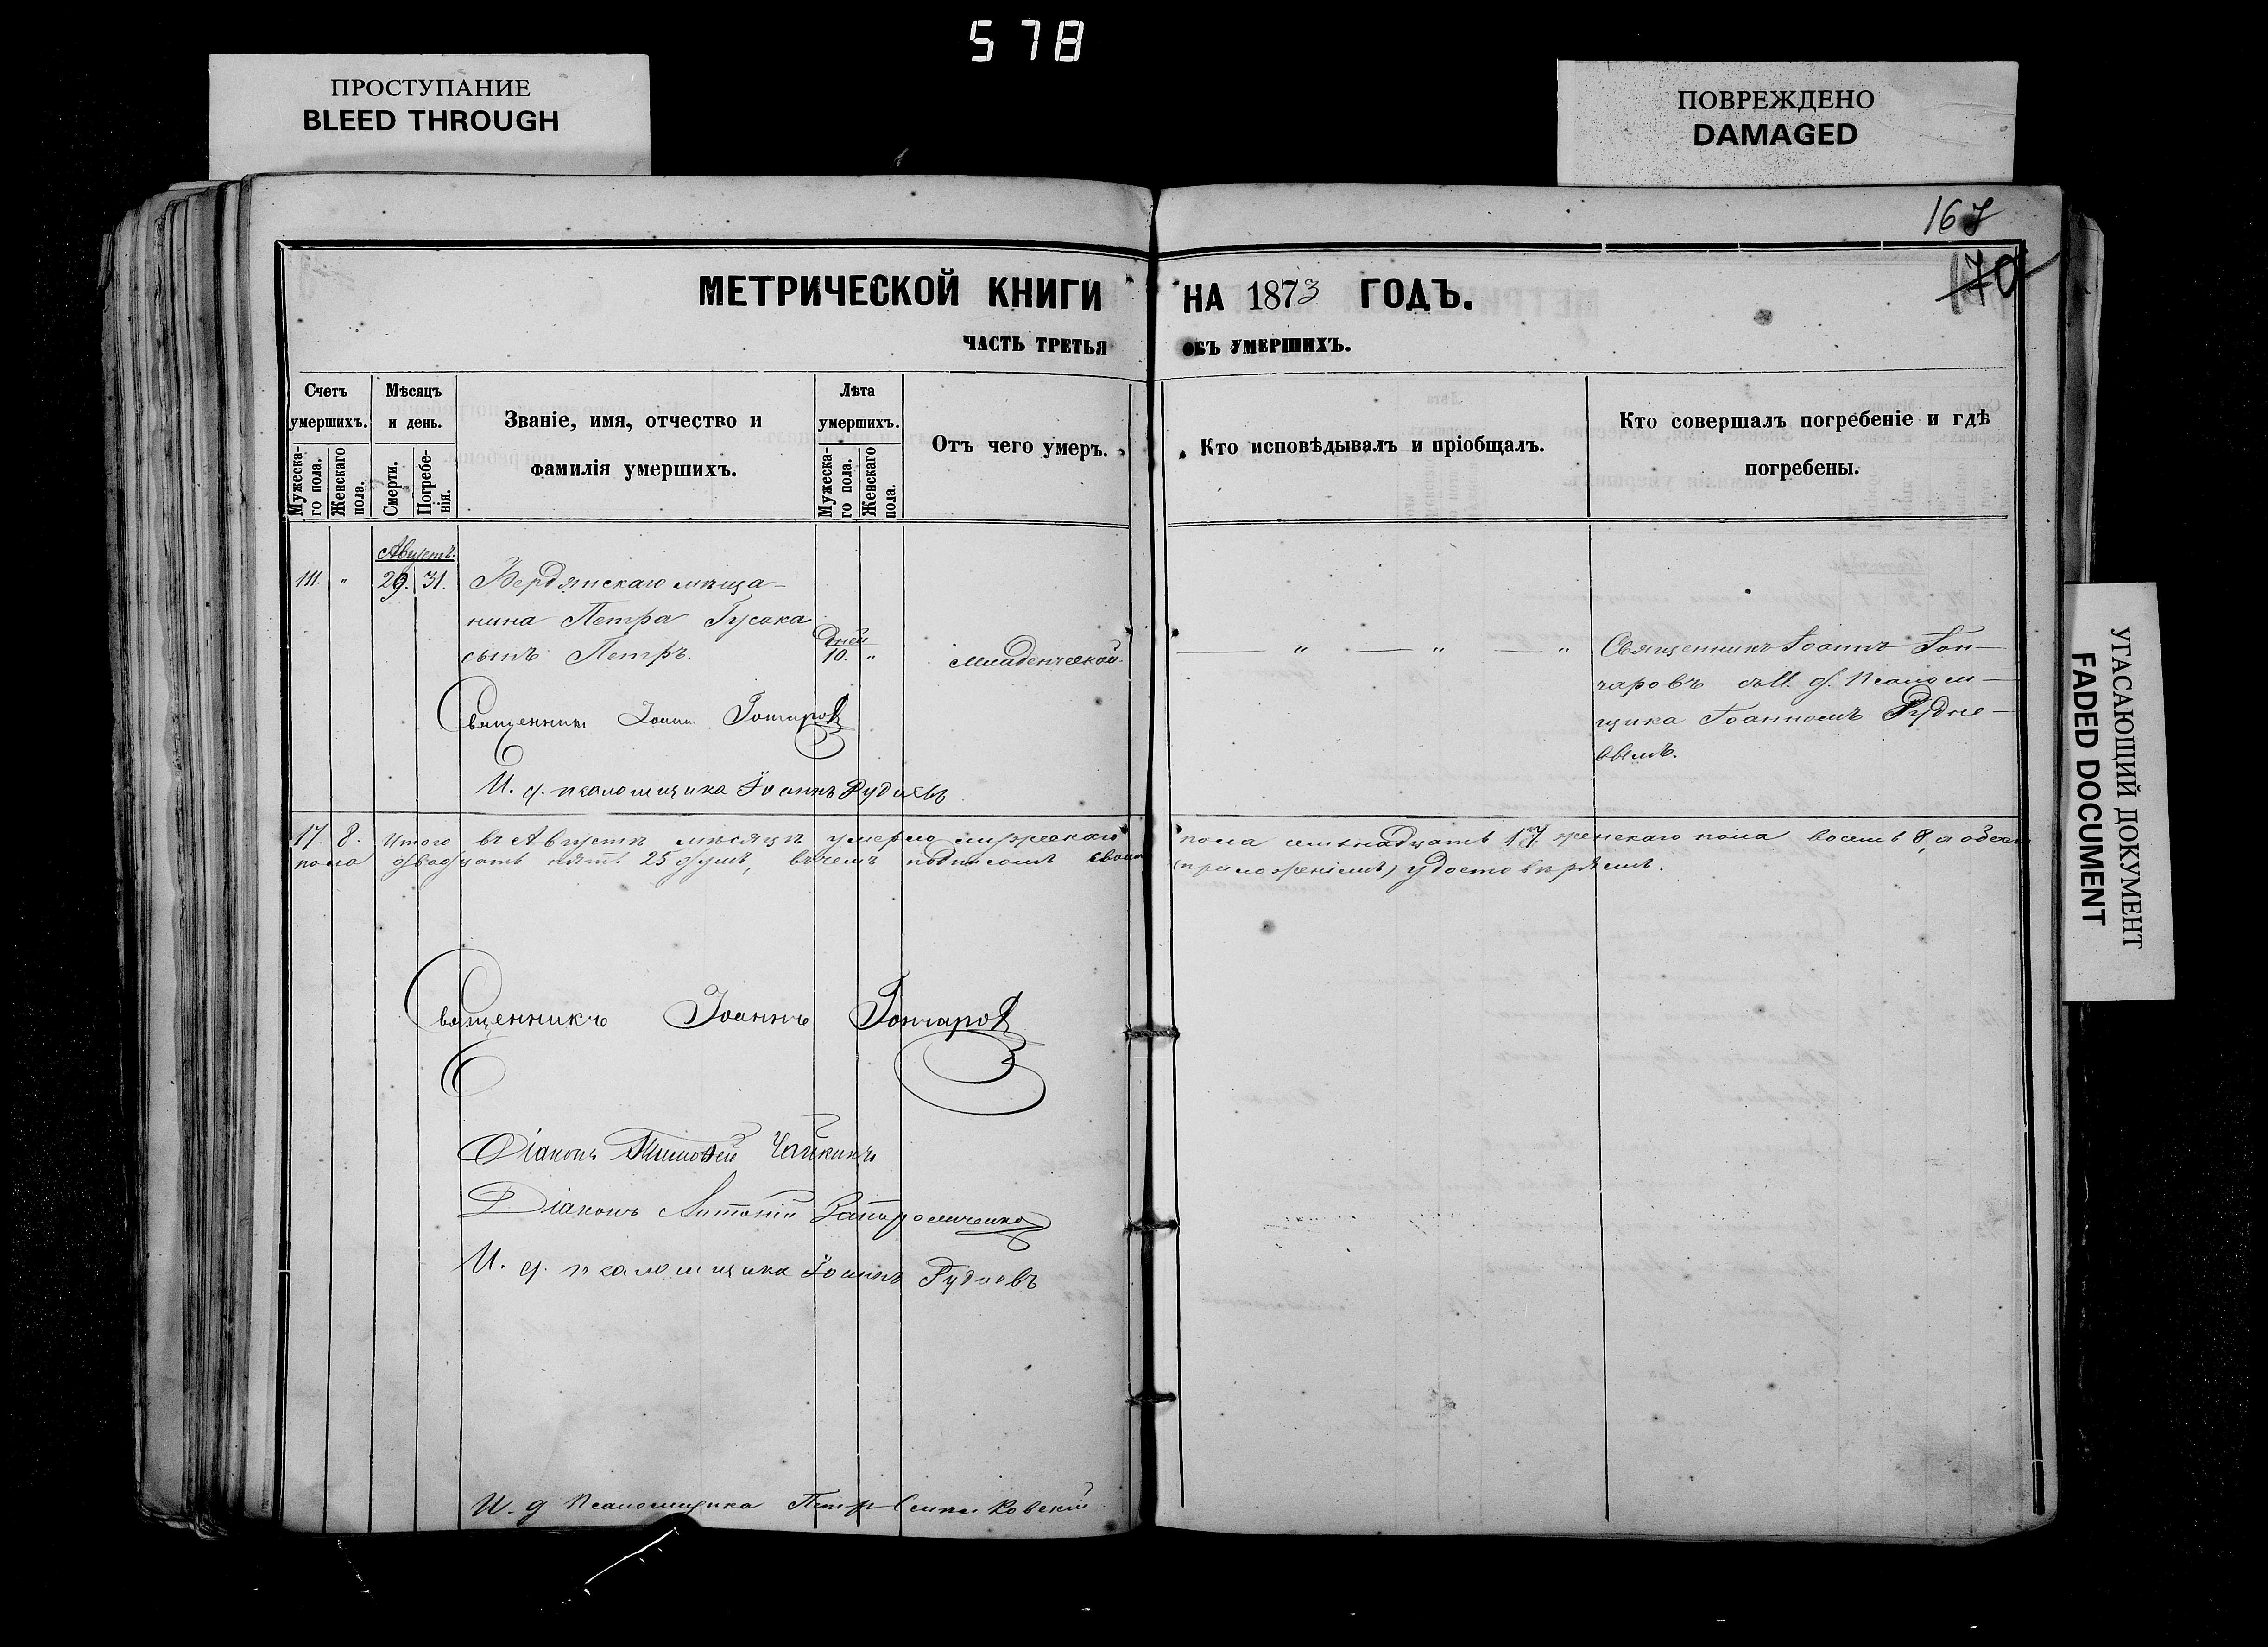 578
ПРОСТУПАНИЕ
BLEED THROUGH
ПОВРЕЖДЕНО
DAMAGED
167
170
МЕТРИЧЕСКОЙ КНИГИ НА 1873 ГОДЪ.
ЧАСТЬ ТРЕТЬЯ ОБЪ УМЕРШИХЪ.
Счетъ умершихъ.
Мужеска-
го пола.
Женскаго
пола.
Мѣсяцъ
и день.
Смерти.
Погребе-
нія.
Званіе, имя, отчество и
фамилія умершихъ.
Лѣта
умершихъ.
Мужеска-
го пола.
Женскаго
пола.
Отъ чего умеръ.
Кто исповѣдывалъ и пріобщалъ.
Кто совершалъ погребеніе и гдѣ
погребены.
Августъ.
111. " 29. 31. Бердянскаго мѣща-
нина Петра Гусака
сынъ Петръ.
Дней
10. "
младенческой.
" " "
Священникъ Іоаннъ Гон-
чаровъ съ И. д. Псалом-
щика Іоанномъ Рудне-
вымъ.
Священникъ Іоаннъ Гончаровъ
И. д. псаломщика Іоаннъ Рудневъ
17. 8. Итого въ Августѣ мѣсяцѣ умерло мужескаго пола семьнадцать 17, женскаго пола восемь 8, а обоего
пола двадцать пять 25 душъ, въ чемъ подписомъ своимъ (приложеніемъ) удостовѣряемъ.
Священникъ Іоаннъ Гончаровъ
Діаконъ Тимофей Чайкинъ
Діаконъ Антоній
И. д. псаломщика Іоаннъ Рудневъ
И. д Псаломщика Петръ
УГАСАЮЩИЙ ДОКУМЕНТ
FADED DOCUMENT